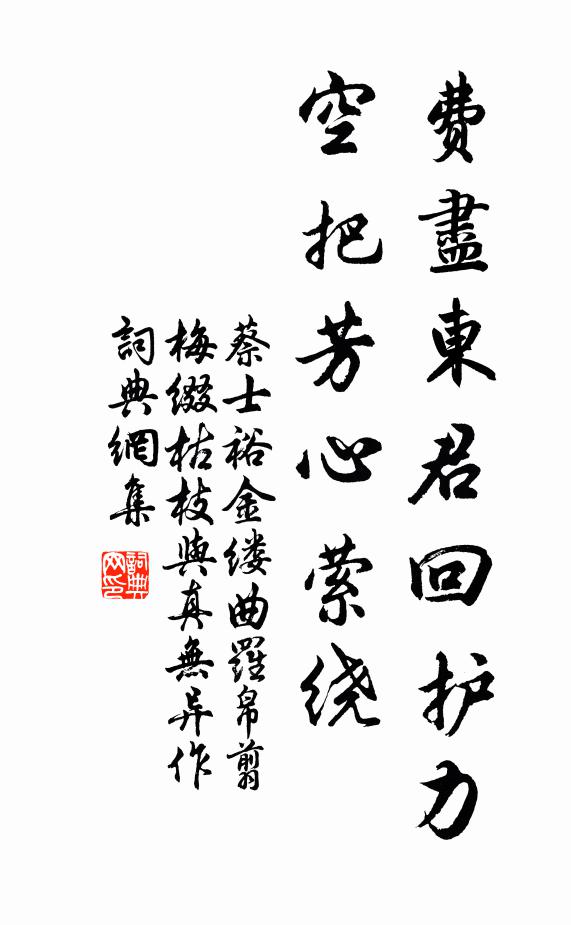 費盡東君回护力
空把芳心萦绕
蔡士裕金缕曲羅帛翦
梅缀枯枝與真無异作
詞典網集
詞典网印